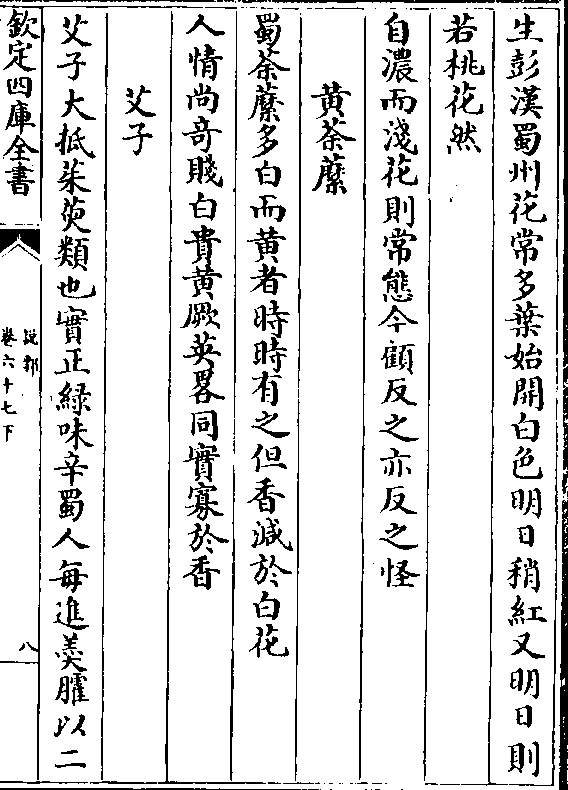 生彭漢蜀州花常多葉始開白色明日稍紅又明日則
若桃花然
自濃而淺花則常態今顧反之亦反之怪
黄荼蘼
蜀荼蘼多白而黄者時時有之但香減於白花
人情尚竒賤白貴黄厥英畧同實寡於香
艾子
艾子大抵茱萸類也實正緑味辛蜀人每進羮臛以二
欽定四庫全書
説郛
卷六十七下
八